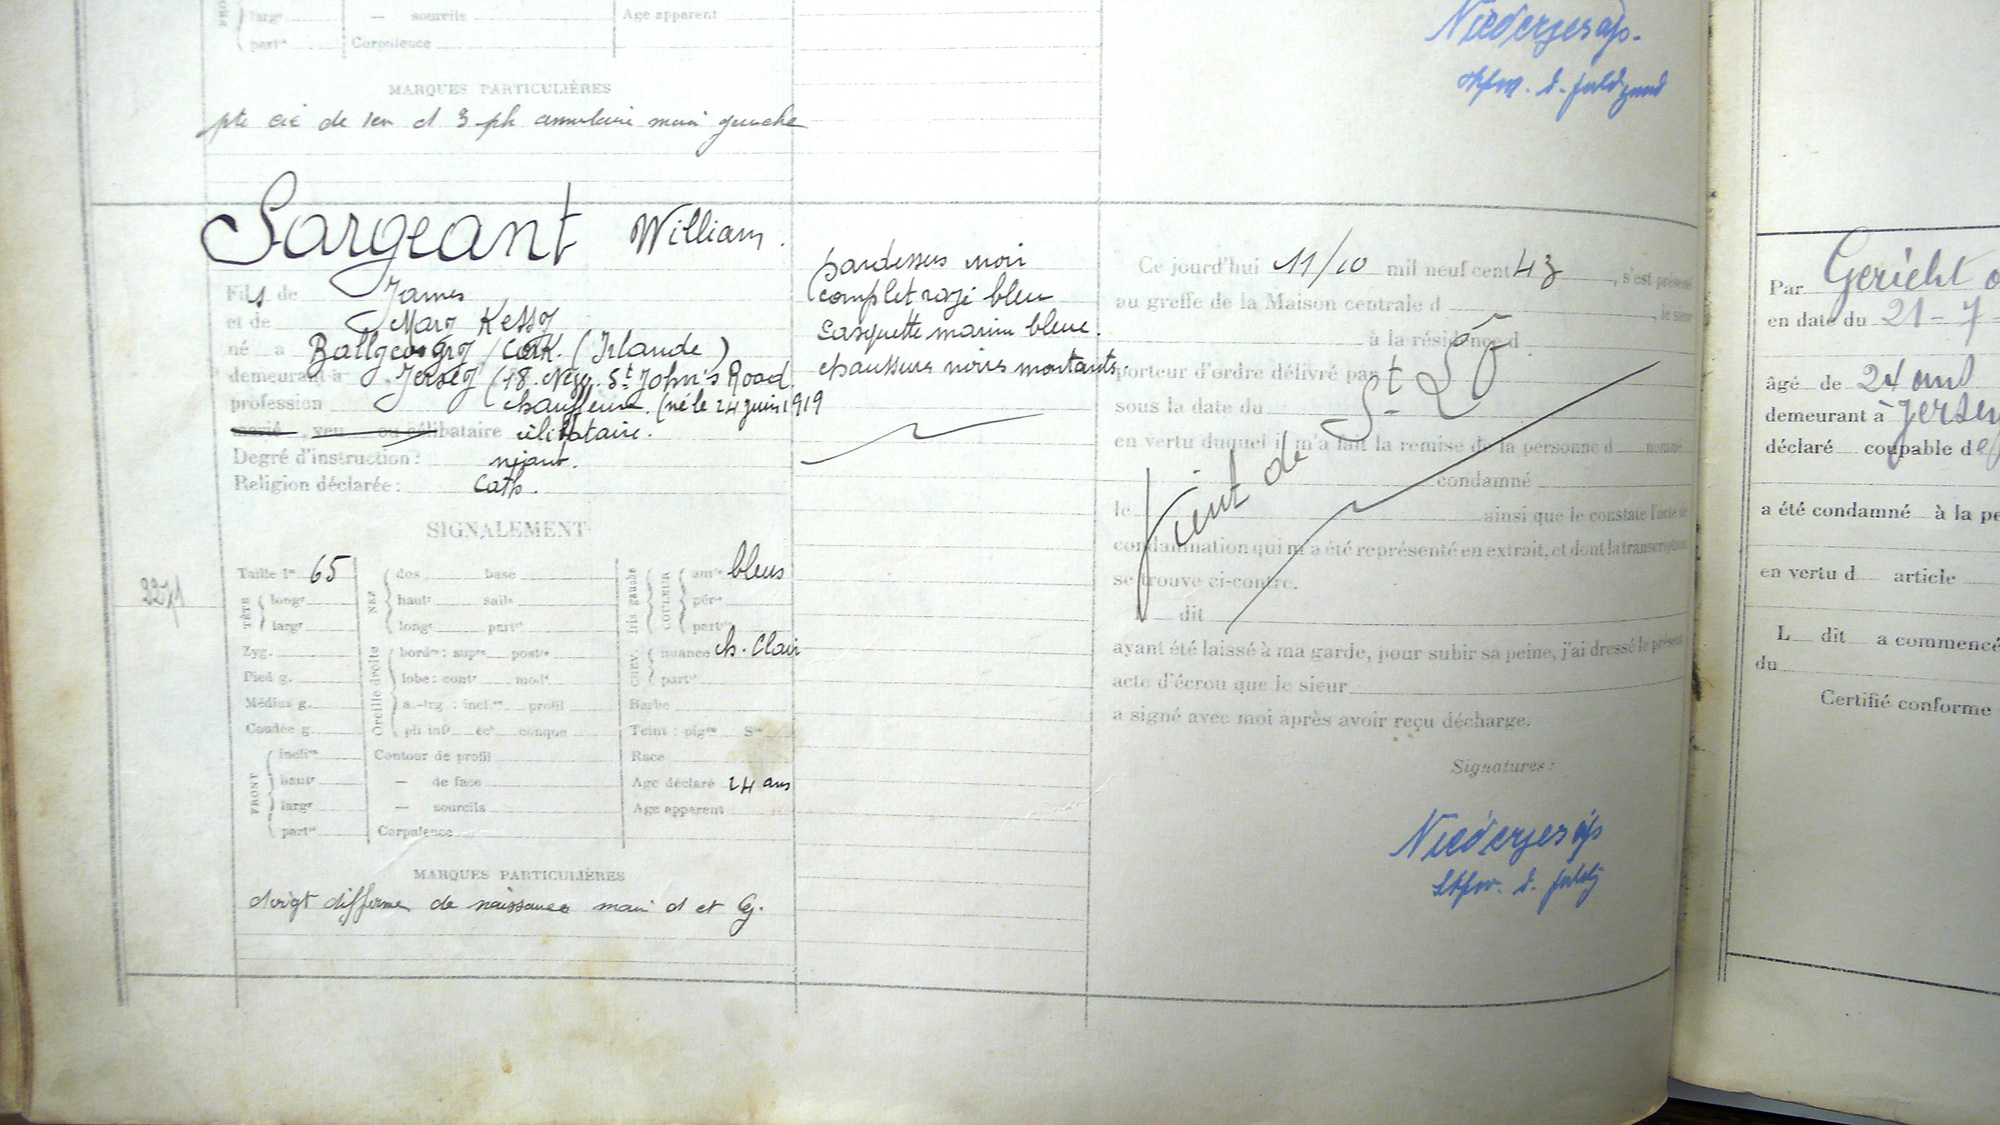 larg^r — sourcils Age apparent
part^té Corpulence
MARQUES PARTICULIÈRES
pte cic de 1er et 3 ph annulaire main gauche
Niederjesaß.
d.
Sargeant William.
Fils de James
et de Mary Kelly
né à Cork. (Irlande)
demeurant à Jersey (18. New. St John's Road
profession chauffeur. (né le 24 juin 1919
marié, veu ou célibataire célibataire.
Degré d'instruction :
Religion déclarée : Cath.
pardessus noir
complet rayé bleu
casquette marine bleue.
chaussures noires montants.
SIGNALEMENT
2271
Taille 1m 65
TÊTE long^r larg^r
Zyg.
Pied g.
Médius g.
Coudée g.
FRONT incli^on haut^r larg^r part^té
NEZ dos base
haut^r saill^e
long^r part^té
Oreille droite bord^re : sup^re post^re
lobe : cont^r mod^é
a.-trg : incl^on profil
pli inf^r éc^t conque
Contour de profil
— de face
— sourcils
Corpulence
Iris gauche COULEUR aur^le bleus
pér^ie
part^té
CHEV. nuance ch. Clair
part^té
Barbe
Teint : pig^re S^ne
Race
Age déclaré 24 ans
Age apparent
MARQUES PARTICULIÈRES
doigt difforme de naissance main d et G.
Ce jourd'hui 11/10 mil neuf cent 43, s'est présenté
au greffe de la Maison centrale d , le sieur
à la résidence d
porteur d'ordre délivré par
sous la date du
en vertu duquel il m'a fait la remise de la personne d nommé
condamné
le ainsi que le constate l'acte de
condamnation qui m'a été représenté en extrait, et dont la transcription
se trouve ci-contre.
L dit
Vient de St
ayant été laissé à ma garde, pour subir sa peine, j'ai dressé le présent
acte d'écrou que le sieur
a signé avec moi après avoir reçu décharge.
Signatures :
Niederjesaß
d.
Par Gericht
en date du 21-7-
âgé de 24 ans
demeurant à Jersey
déclaré coupable de
a été condamné à la pe
en vertu d article
L dit a commencé
du
Certifié conforme